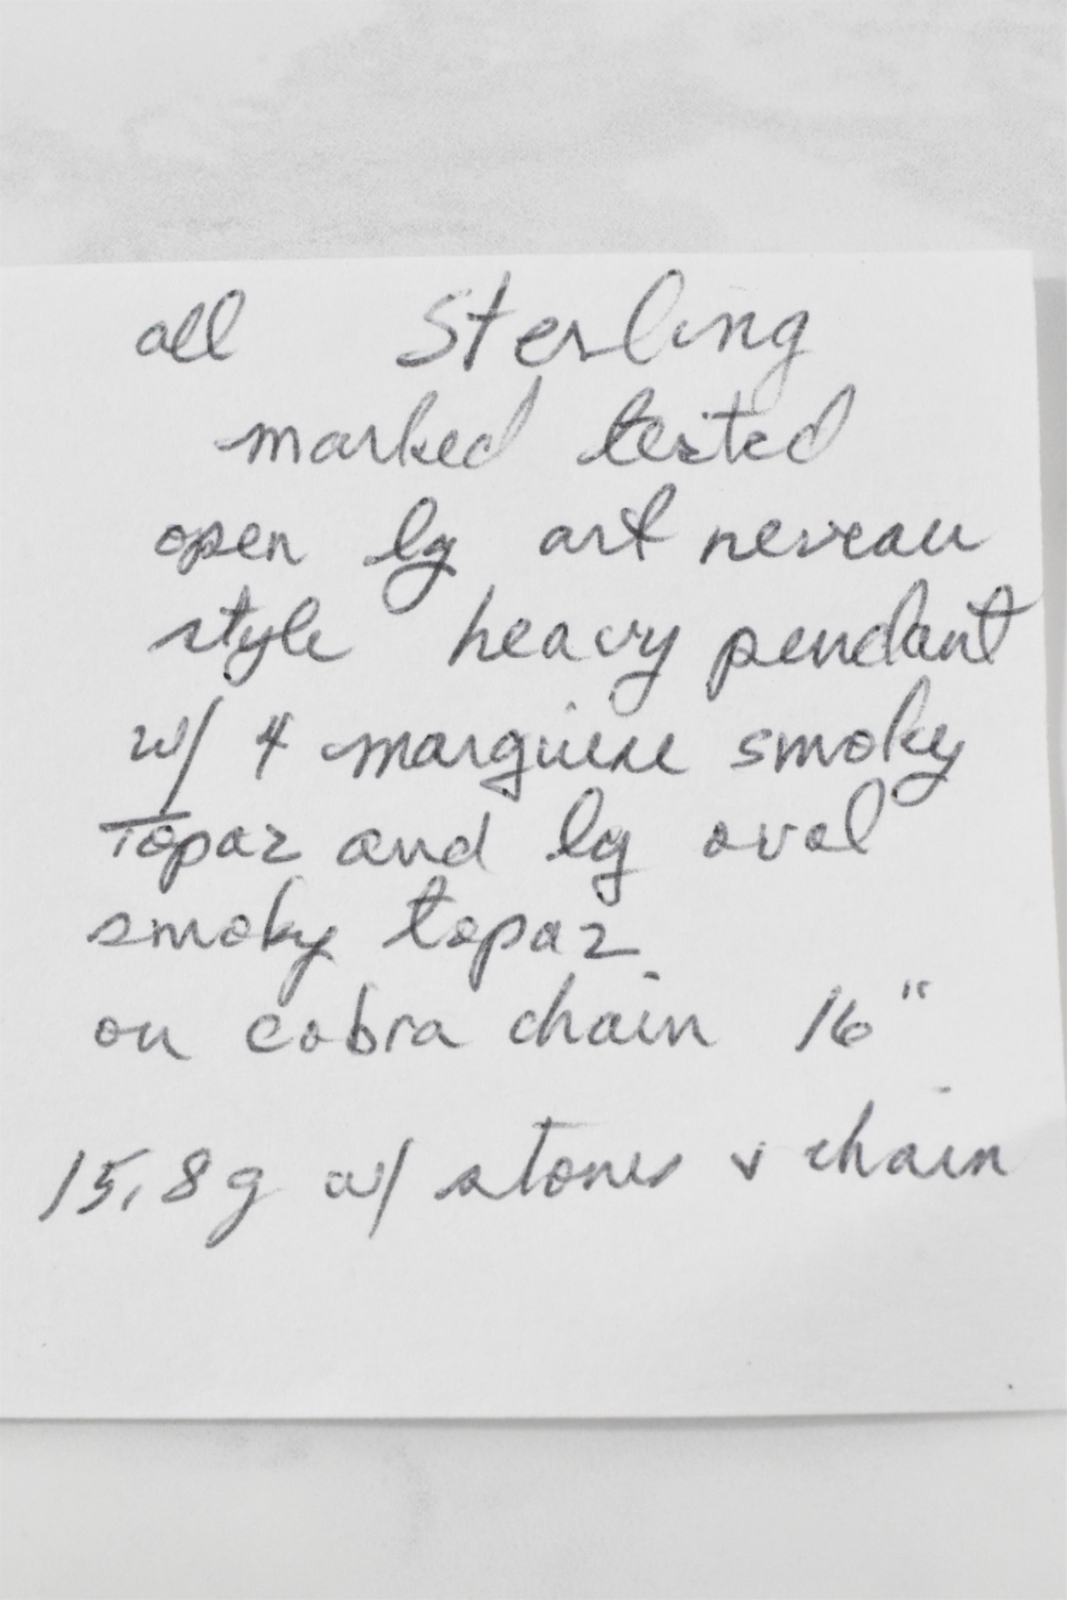 all Sterling
marked tested
open lg art neveau
style heavy pendant
w/ 4 marguise smoky
Topaz and lg oval
smoky topaz
on cobra chain 16"
15.8g w/ stones & chain